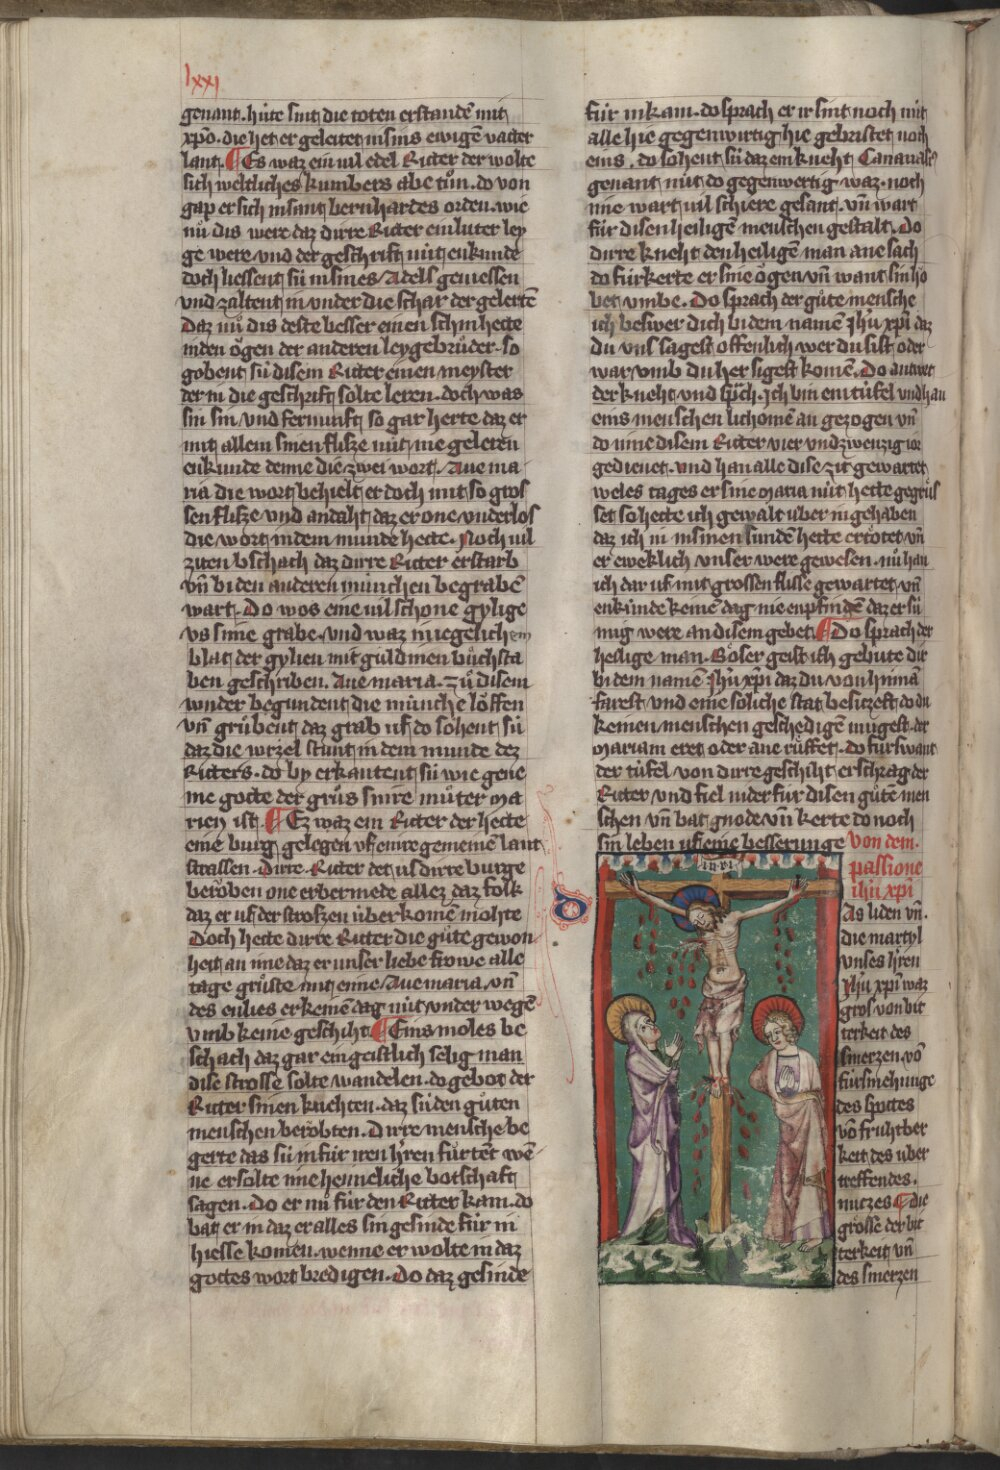 lxxj
genant. húte sint die toten erstandē mit
xp̄o. die het er geleitet in sins ewigē vatter
lant. Es waz ein vil edel Ritter der wolte
sich weltliches kumbers abe tůn. do von
gap er sich in sant bernhardes orden. wie
nů dis were daz dirre Ritter ein luter ley
ge were vnd der geschrift nút enkunde
doch liessent sú in sines Adels geniessen
vnd zaltent in vnder die schar der gelertē
Daz nů dis deste besser einen schin hette
in den ǒgen der anderen leygebrůder. so
gobent sú disem Ritter einen meyster
der in die geschrift solte leren. doch was
sin sin vnd fernunft so gar herte daz er
mit allem sinen flisze nút me geleren
enkunde denne die zwei wort. Aue ma
ria die wort behielt er doch mit so gros
sen flisze vnd andaht daz er one vnderlos
die wort in dem munde hette. Noch vil
ziten bschach daz dirre Ritter erstarb
vn̄ bi den anderen múnchen begrabē
wart. Do wos eine vil schone gylige
vs sime grabe. vnd waz in iegelichem
blat der gylien mit guldinen bůchsta
ben geschriben. Aue maria. zů disem
wnder begundent die múnche lǒffen
vn̄ grůbent daz grab uf. do sohent sú
daz die wrzel stunt in dem munde dez
Ritters. do by erkantent sú wie gene
me gotte der grůs sinre můter Ma
rien ist. Ez waz ein Ritter der hette
eine burg gelegen uf einre gemeinē lant
strassen. Dirre Ritter det us dirre burge
berǒben one erbermede allez daz folk
daz er uf der strofzen úberkomē mohte
Doch hette dirre Ritter die gůte gewon
heit an ime daz er vnser liebe frowe alle
tage grůste mit eime Aue maria. vn̄
des enlies er keinē dag nút vnder wegē
vmb keine geschiht. Eins moles be
schach daz gar ein geistlich selig man
dise strosse solte wandelen. do gebot der
Ritter sinen knehten. daz sú den gůten
menschen berǒbten. Dirre mensche be
gerte das sú in fúr iren h̄ren fůrtēt wē
ne er solte ime heimeliche botschaft
sagen. Do er nů fúr den Ritter kam. do
bat er in daz er alles sin gesinde fúr in
hiesse komen. wenne er wolte in daz
gottes wort bredigen. Do daz gesinde
fúr in kam. do sprach er ir sint noch nút
alle hie gegenwirtig hie gebristet noch
eins. do sohent sú daz ein kneht
genant nút do gegenwertig waz. noch
ime wart vil schiere gesant. vn̄ wart
fúr disen heiligen menschen gestalt. Do
dirre kneht den heiligen man ane sach
do fúrkerte er sine ǒgen vn̄ want sin hǒ
bet vmbe. Do sprach der gůte mensche
ich beswer dich bi dem namē Jhū xp̄i daz
du vns sagest offenlich wer du sist oder
war vmb du her sigest komē. Do antwrt
der kneht vnd sp̄ch. Ich bin ein túfel vnd han
eins menschen lichomē an gezogen vn̄
do mitte disem Ritter vier vnd zwenzig ior
gedienet. vnd han alle dise zit gewartet
weles tages er sine maria nút hette gegrůs
set so hette ich gewalt úber in gehaben
daz ich in in sinen súnden hette ertǒtet vn̄
er eweklich vnser were gewesen. nů han
ich dar uf mit grossen flisse gewartet vn̄
enkúnde keinē dag nie enpfindē daz er sú
mig were an disem gebet. Do sprach der
heilige man. Bǒser geist ich gebúte dir
bi dem namē Jhū xp̄i daz du von hinnā
farest vnd eine soliche stat besitzest do du
keinen menschen geschedigē mugest. der
Mariam eret oder ane růffet. do furswant
der túfel von dirre geschiht erschrag der
Ritter vnd fiel nider fúr disen gůtē men
schen vn̄ bat gnode vn̄ kerte do noch
sin leben uf eine besserunge von dem
passione
ihū xp̄i
inri
Das liden vn̄
die martyl
vnses h̄ren
Jhū xp̄i waz
gros von bit
terkeit des
smerzen. vō
fúrsmehunge
des spottes
vō fruhtber
keit des úber
treffendes.
nutzes die
grosse der bit
terkeit vn̄
des smerzen